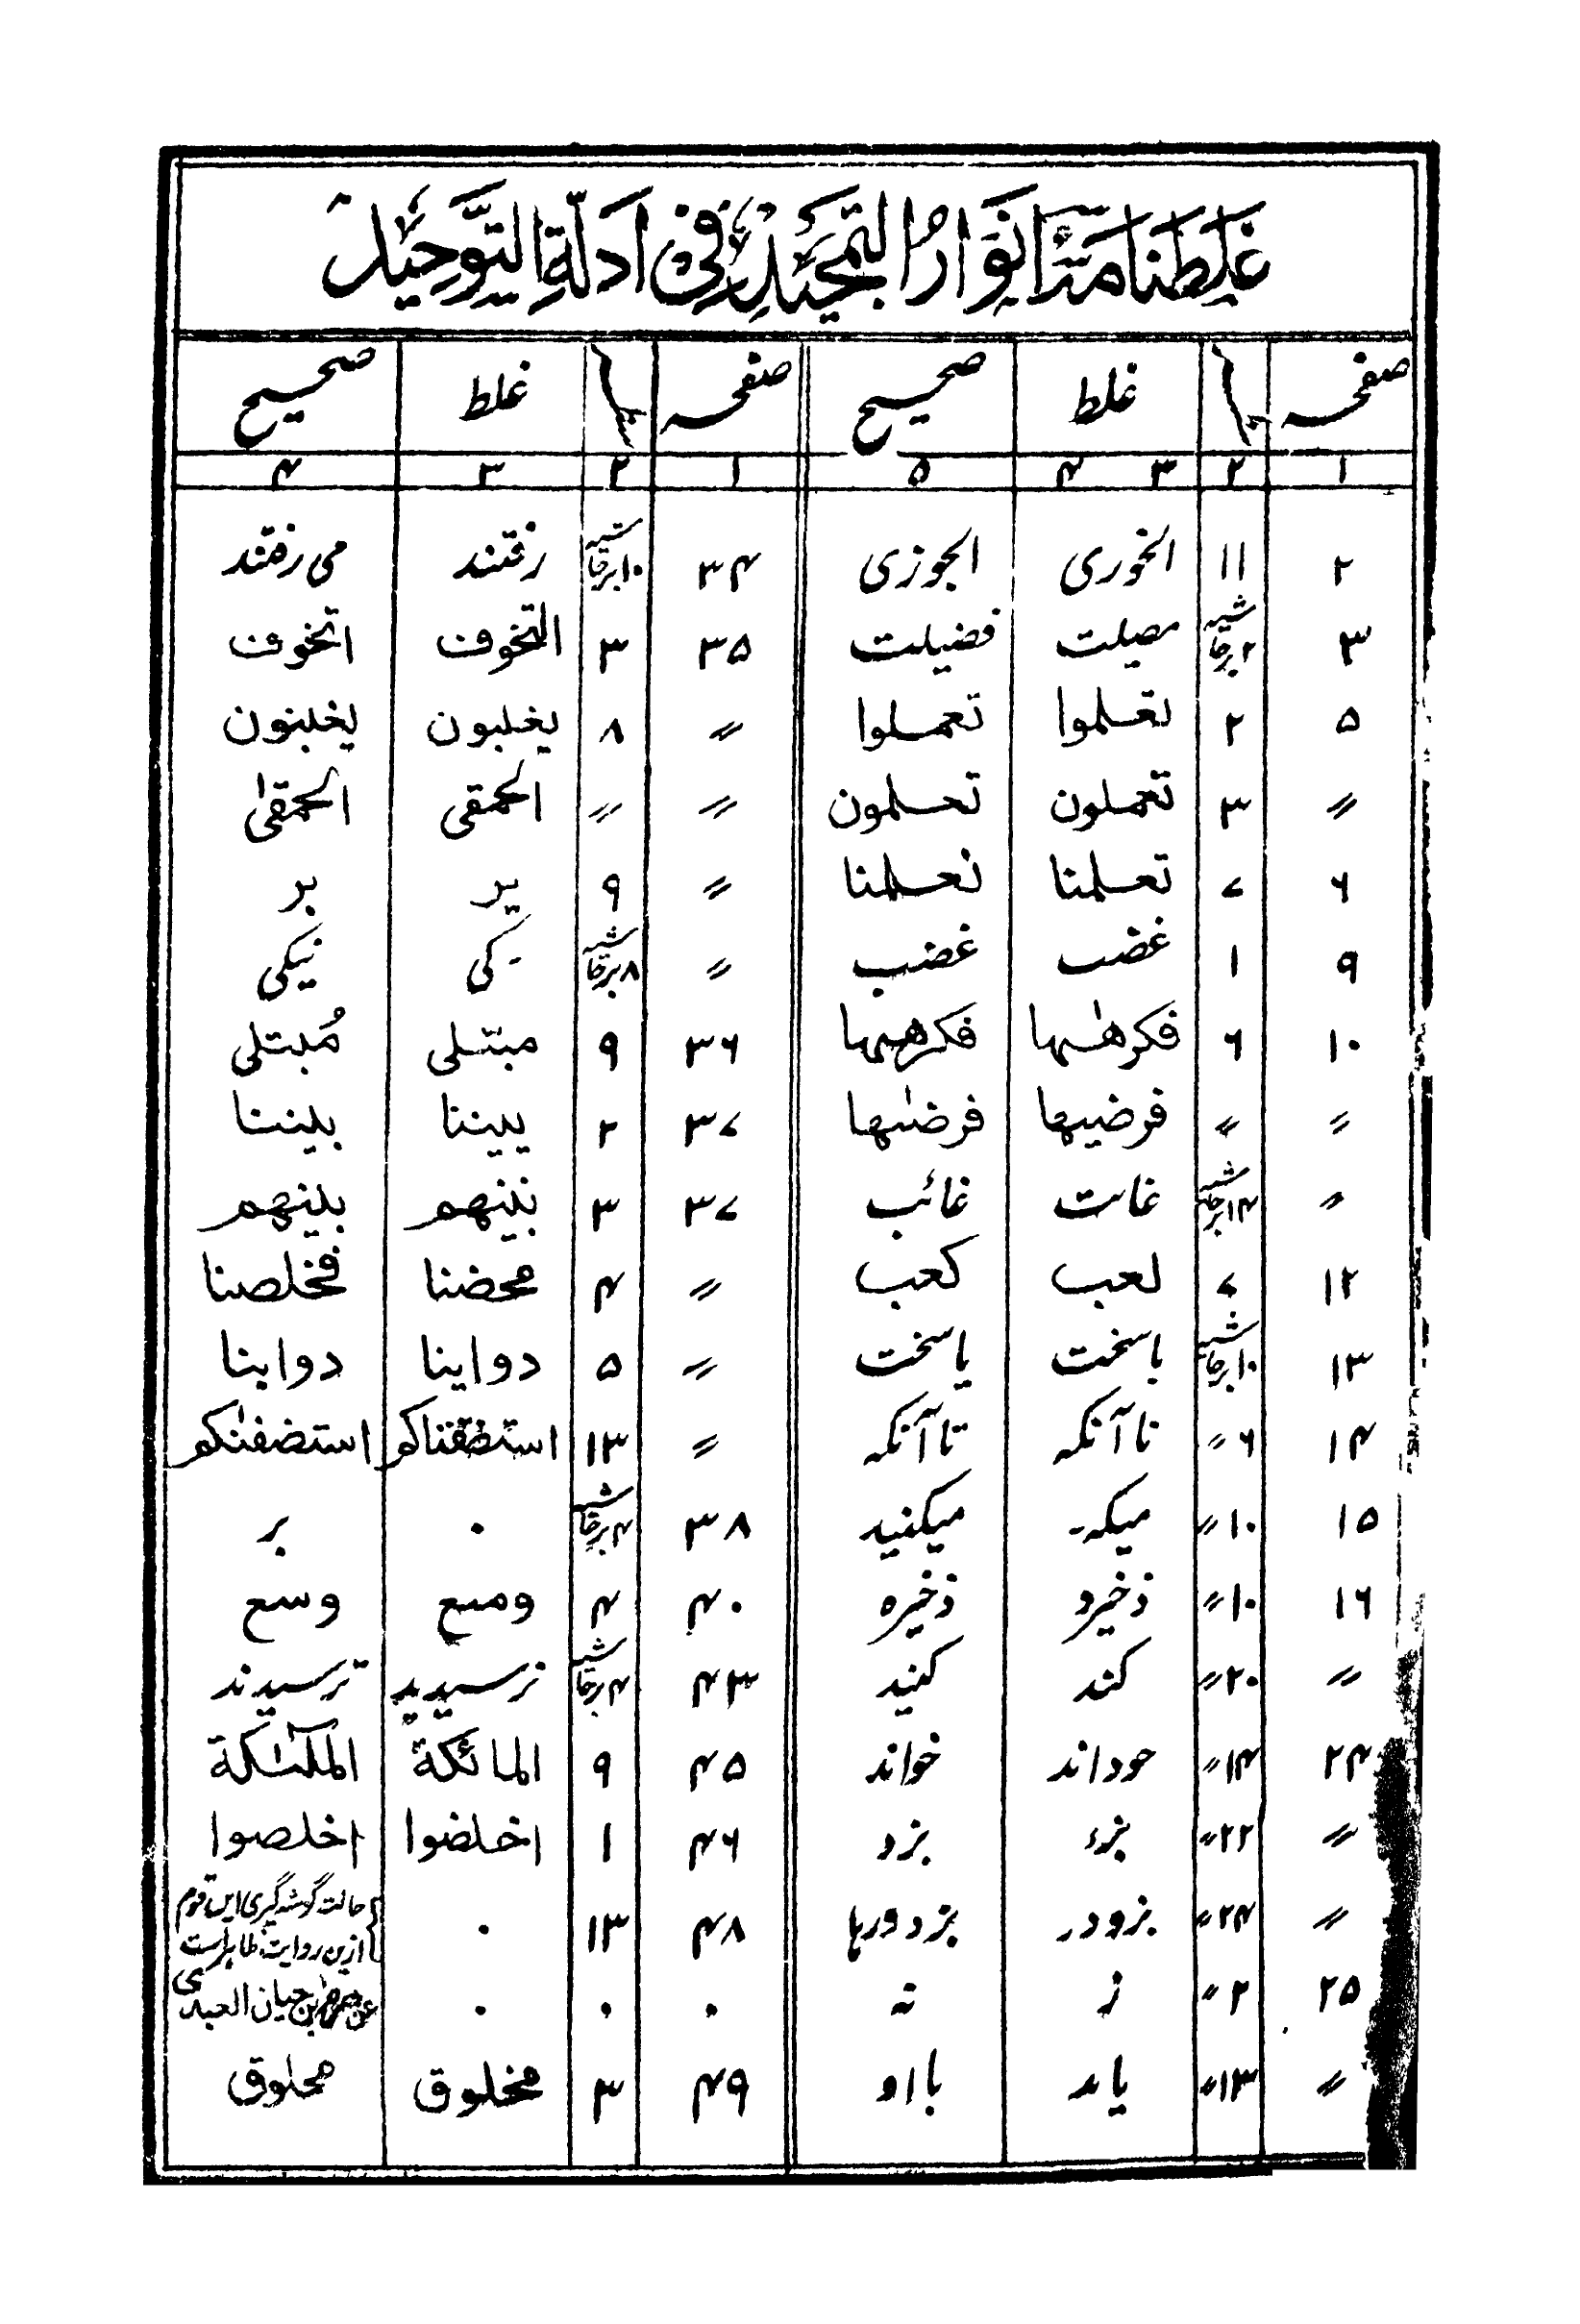 غلطنامۂ انوار التمجید فی ادلۃ التوحید
صفحہ سطر غلط صحیح صفحہ سطر غلط صحیح
۱ ۲ ۳ ۴ ۵ ۱ ۲ ۳ ۴
۲ ۱۱ الخوری الجوزی ۳۴ ۱۰ برحاشیہ رفتند می رفتند
۳ ۲ برحاشیہ مصیلت فضیلت ۳۵ ۳ التخوف اتخوف
۵ ۲ تعلموا تعملوا 〃 ۸ یغلبون
〃 ۳ تعملون تعلمون 〃 〃 الحمقی الحمقیٰ
۶ ۷ تعلمنا نعلمنا 〃 ۹ یر بر
۹ ۱ غضت غضب 〃 ۸ برحاشیہ کی نیکی
۱۰ ۶ فکرھٰہا فکرھہا ۳۶ ۹ مبتلی مُبتلی
〃 〃 فرضیہا فرضٰہا ۳۷ ۲ ییننا بیننا
〃 ۱۴ برحاشیہ غائت غائب ۳۷ ۳ بینھم
۱۲ ۷ لعب کعب 〃 ۴ محضنا فخلصنا
۱۳ ۱۰ برحاشیہ باسخت یاسخت 〃 ۵ دواینا دوابنا
۱۴ ۶ 〃 ناآنکہ تاآنکہ 〃 ۱۳
۱۵ ۱۰ 〃 میکہ۔ میکنید ۳۸ ۴ برحاشیہ ۰ بر
۱۶ ۱۰ 〃 ذخیرد ذخیرہ ۴۰ ۴ ومیع وسع
〃 ۲۰ 〃 کند کنید ۴۳ ۴ برحاشیہ نرسیدید ترسیدند
۲۴ ۱۴ 〃 حوداند خواند ۴۵ ۹ المائکۃ الملٰئکۃ
〃 ۲۲ 〃 بزء بزد ۴۶ ۱ اخلضوا اخلصوا
〃 ۲۴ 〃 بزودر بزدورہا ۴۸ ۱۳ ۰ حالت گوشہ گیری این قوم
ازین روایت ظاہر است
۲۵ ۲ 〃 ز نہ ۰ ۰ ۰ عن ھرم بن حیان العبدی
〃 ۱۳ 〃 یاید بااو ۴۹ ۳ مخلوق محلوق